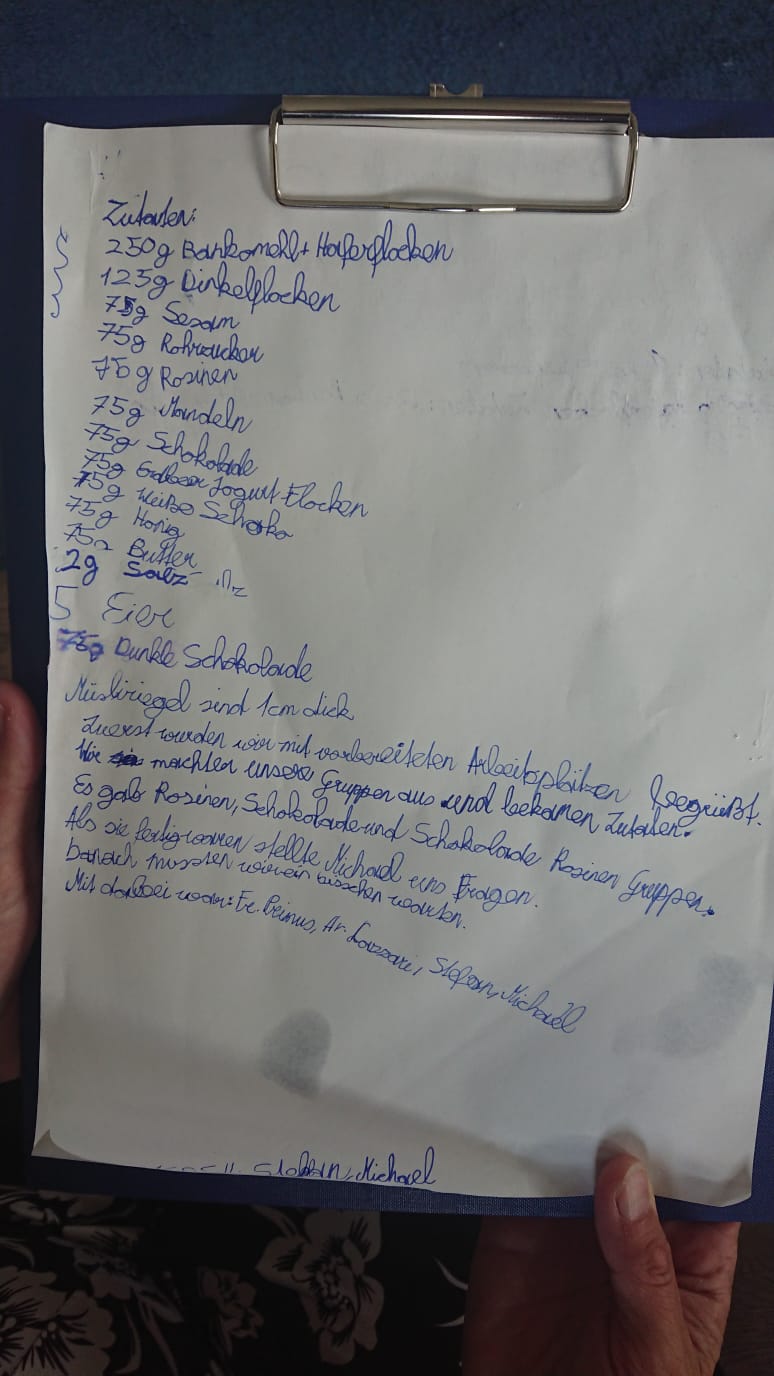 Zutaten:
250g Bankomehl + Haferflocken
125g Dinkelflocken
75g Sesam
75g Rohrzucker
75g Rosinen
75g Mandeln
75g Schokolade
75g Erdbeer Jogurt Flocken
75g Weiße Schoko
75g Honig
75g Butter
2g Salz
5 Eier
75g Dunkle Schokolade
Müsliriegel sind 1cm dick
Zuerst wurden wir mit vorbereiteten Arbeitsplätzen begrüßt.
Wir machten unsere Gruppen aus und bekamen Zutaten.
Es gab Rosinen, Schokolade und Schokolade Rosinen Gruppen.
Als sie fertig waren stellte Michael uns Fragen.
Danach mussten wir ein bisschen warten.
Mit dabei war: Fr. Primus, Stefan, Michael
Stefan, Michael